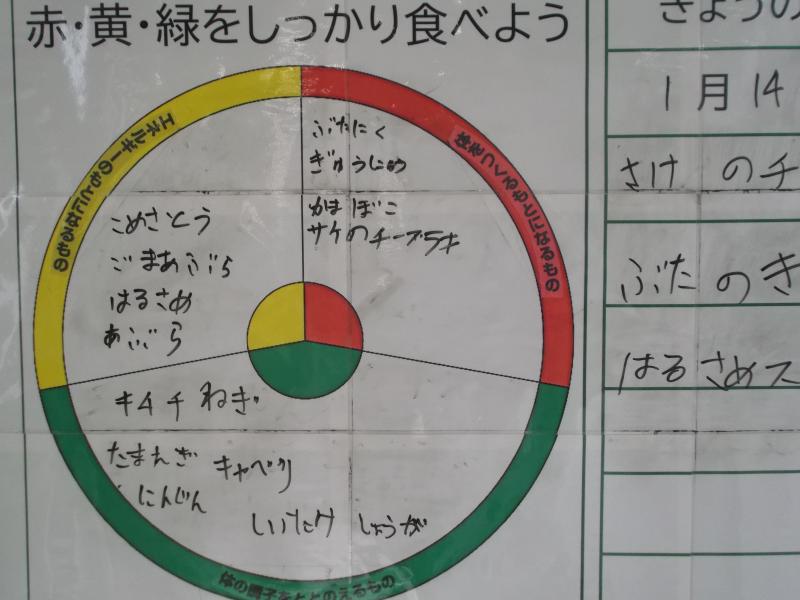 赤・黄・緑をしっかり食べよう
エネルギーのもとになるもの
体をつくるもとになるもの
ぶたにく
ぎゅうにゅう
かまぼこ
サケのチーズフライ
こめさとう
ごまあぶら
はるさめ
あぶら
キムチ ねぎ
たまねぎ キャベツ
にんじん
しいたけ しょうが
体の調子をととのえるもの
きょうの
1月14
さけ のチ
ぶた のキ
はるさめス